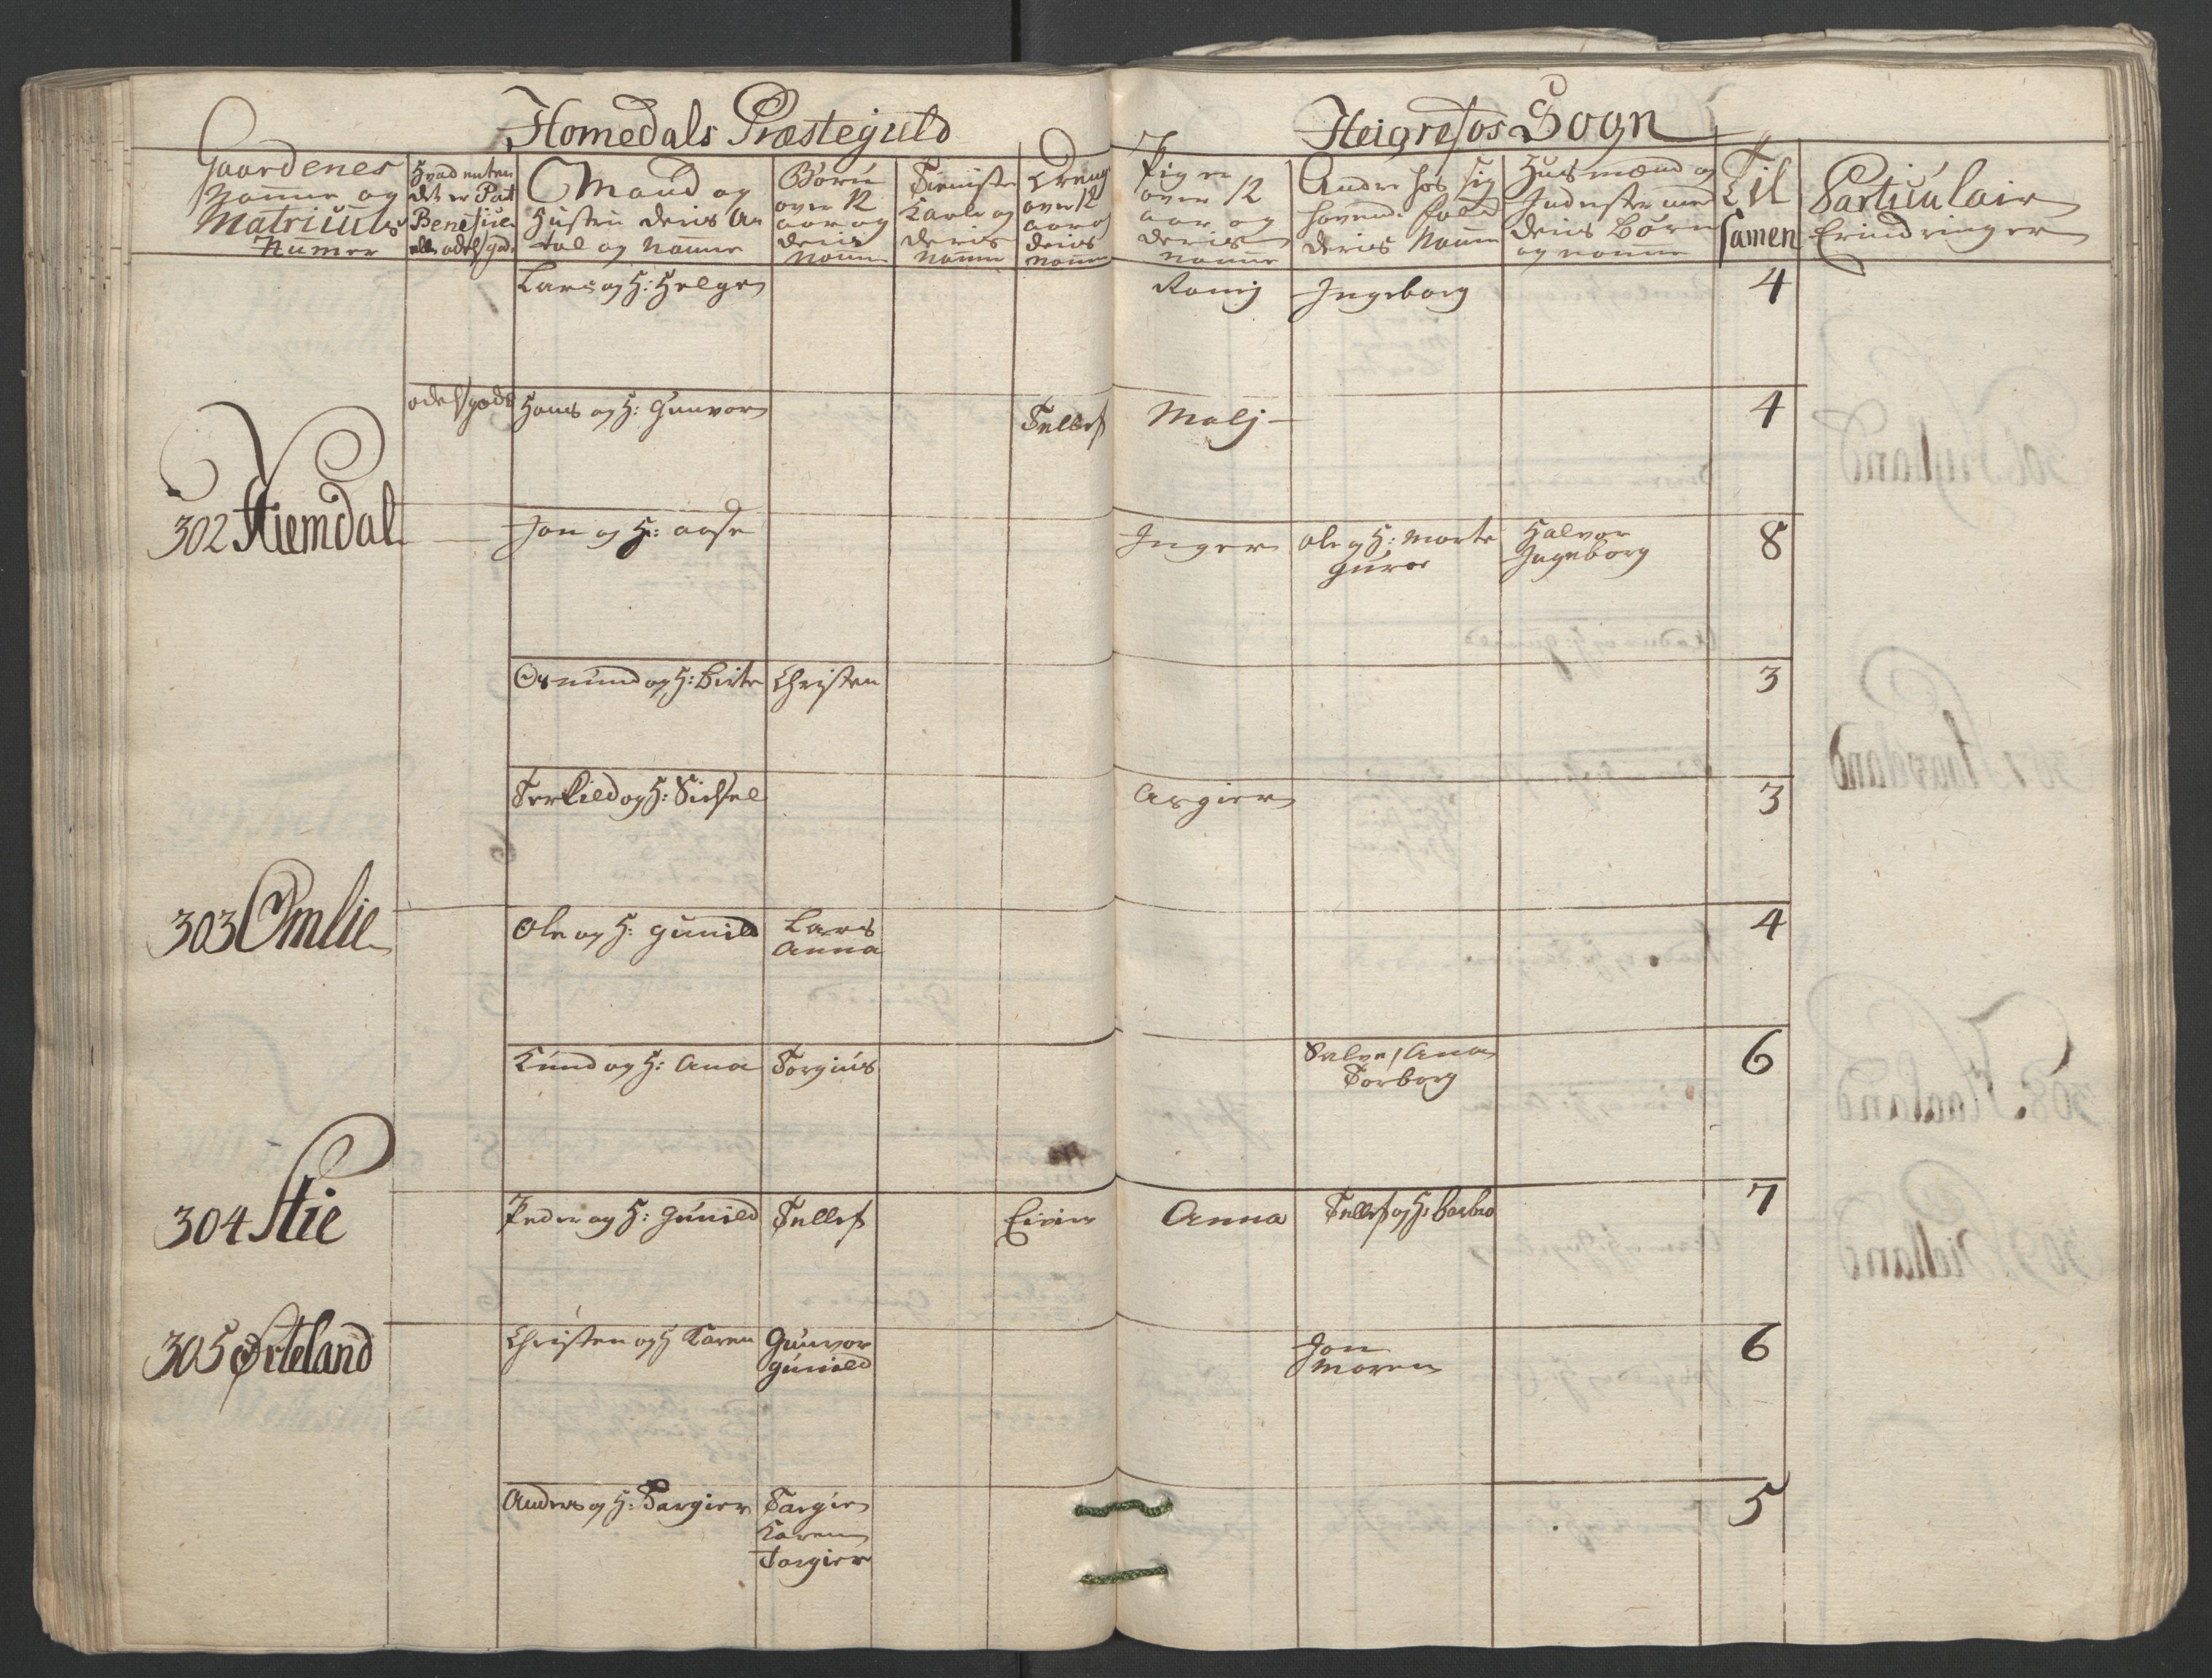 Homedals Præstegield
Heigrefos Sogn
Gaardenes
Nafne og
Matriculs
Numer
Hvad enten
det er Pat
Benefice
eller odelsgods
Mand og
Hustru deris An
tal og Nafne
Børn
over 12
aar og
deris
Nafne
Tieniste
Karle og
deris
Nafne
Drenge
over 12
aar og
deris
Nafne
Piger
over 12
aar og
deris
Nafne
Andre hos sig
havende Folk
deris Nafne
Husmænd og
Inderster med
deris Børn
og Nafne
Til
samen
Particulair
Erindringer
Lars og H: Helge Ronig Ingeborg 4
odelsgods Hans og H: Gunvor Tellef Malj 4
302 Hiemdal Jon og H: Aase Inger Ole og H: Marte Halvor 8
Guroe Ingeborg
Osmund og H: Birte Christen 3
Terkild og H: Sidsel Asgier 3
303 Omlie Ole og H: Gunild Lars 4
Anna
Knud og H: Ana Torgius Salve / Ana 6
Torborg
304 Stie Peder og H: Gunild Tellef Eivin Anna Tellef og H: Barbro 7
305 Ørteland Christen og H Karen Gunvor Jon 6
Gunild Maren
Anders og H: Targier Targier 5
Karen
Targier